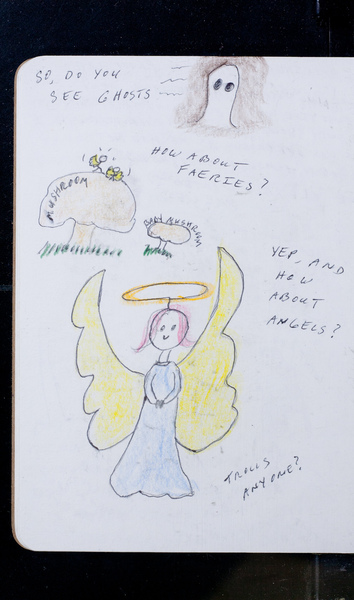 SO, DO YOU
SEE GHOSTS
HOW ABOUT
FAERIES?
MUSHROOM
BABY MUSHROOM
YEP, AND
HOW
ABOUT
ANGELS?
TROLLS
ANYONE?